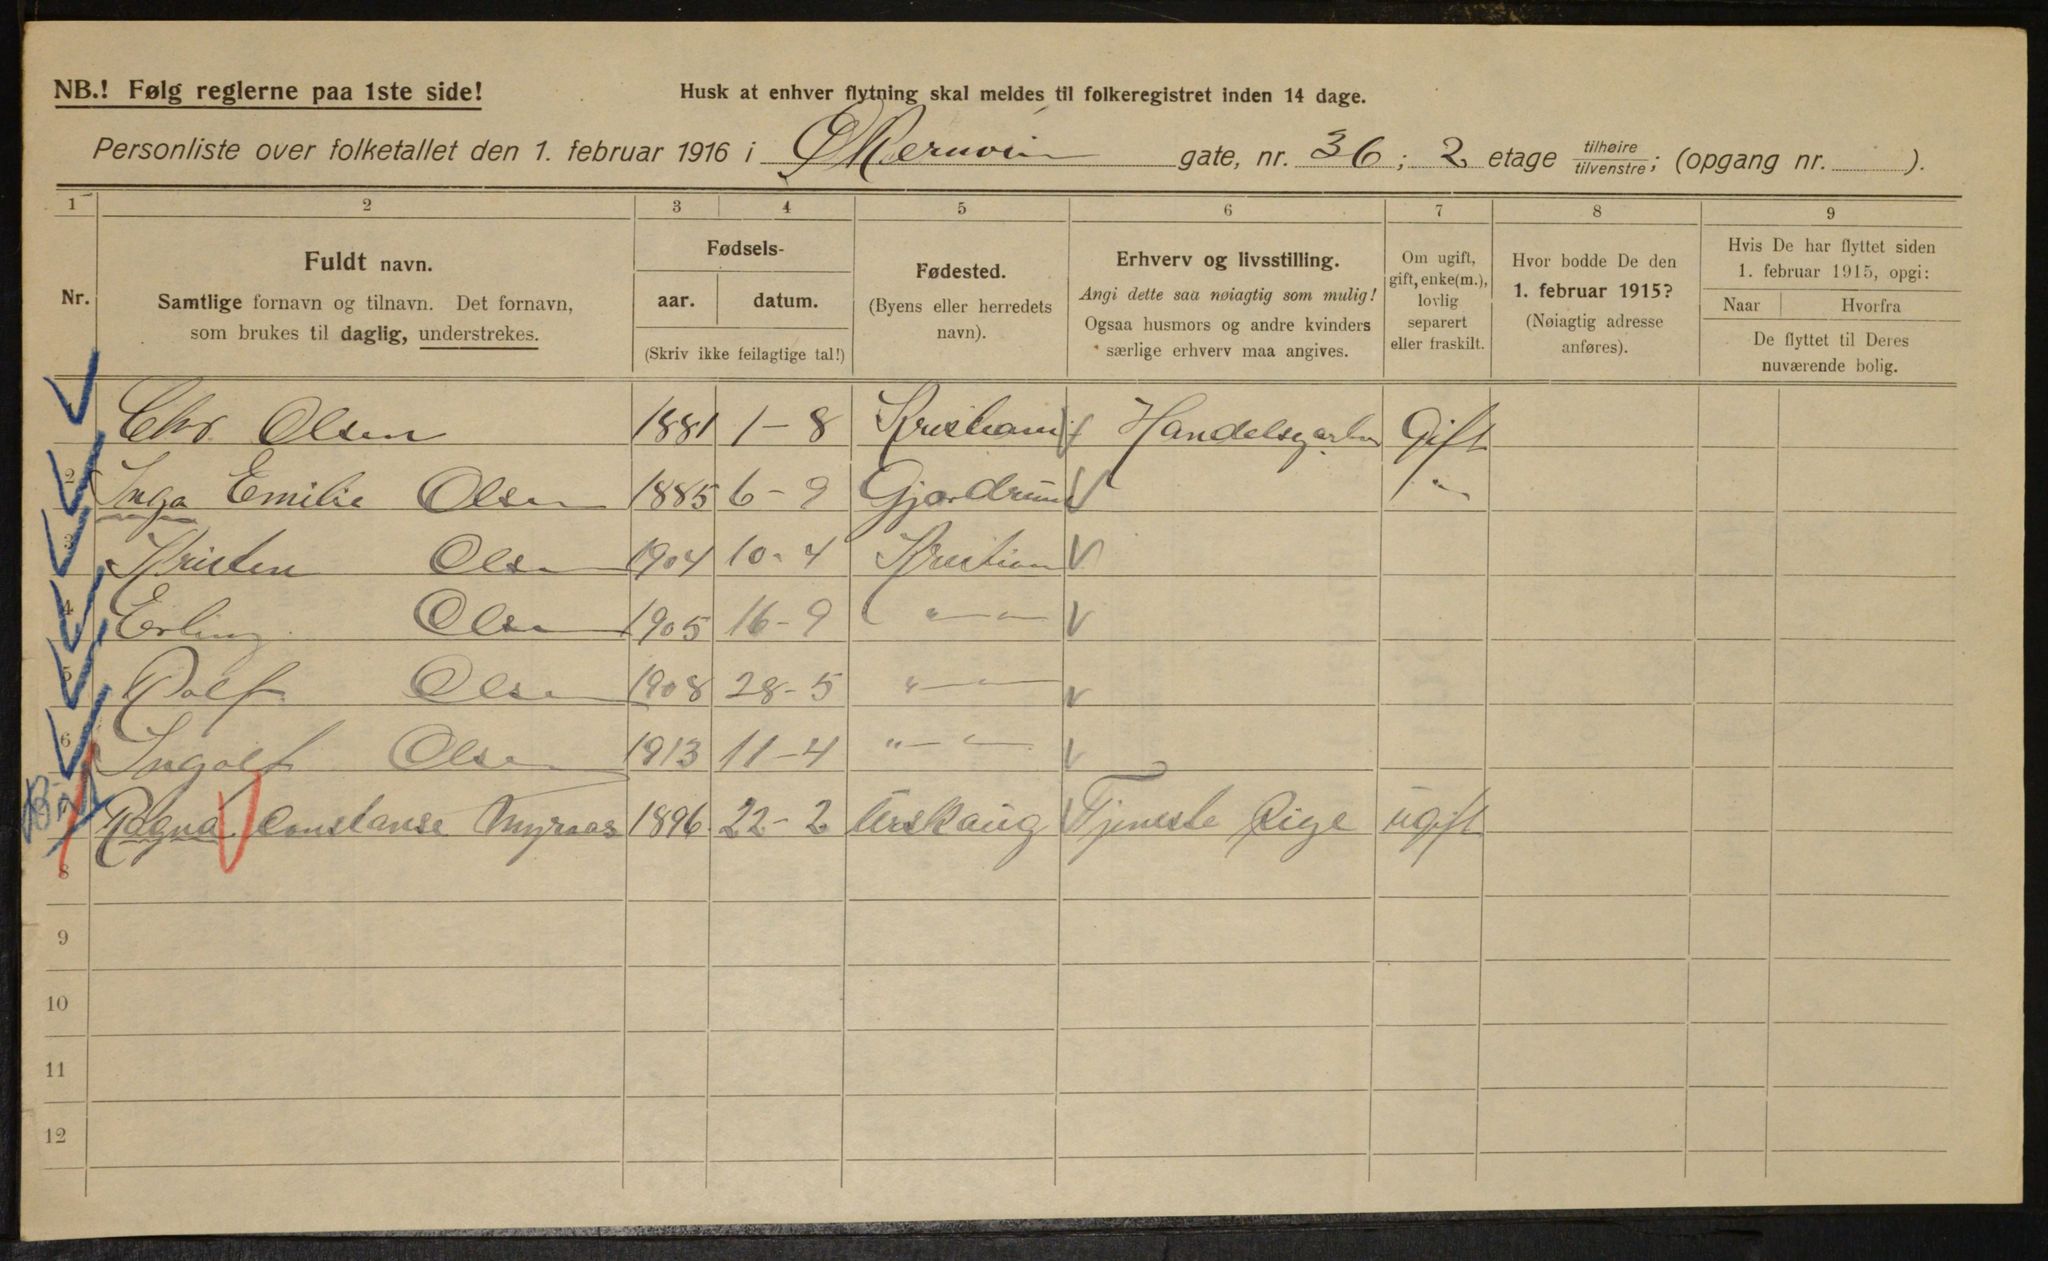 NB.! Følg reglerne paa 1ste side!
Husk at enhver flytning skal meldes til folkeregistret inden 14 dage.
Personliste over folketallet den 1. februar 1916 i Økernvein gate, nr. 36; 2 etage tilhøire/tilvenstre; (opgang nr. ).
1 2 3 4 5 6 7 8 9
Nr.
Fuldt navn.
Samtlige fornavn og tilnavn. Det fornavn,
som brukes til daglig, understrekes.
Fødsels-
aar. datum.
(Skriv ikke feilagtige tal!)
Fødested.
(Byens eller herredets
navn).
Erhverv og livsstilling.
Angi dette saa nøiagtig som mulig!
Ogsaa husmors og andre kvinders
særlige erhverv maa angives.
Om ugift,
gift, enke(m.),
lovlig
separert
eller fraskilt.
Hvor bodde De den
1. februar 1915?
(Nøiagtig adresse
anføres).
Hvis De har flyttet siden
1. februar 1915, opgi:
Naar Hvorfra
De flyttet til Deres
nuværende bolig.
Chr. Olsen 1881 1-8 Kristiani Handelsgartn Gift
2 Inga Emilie Olsen 1885 6-9 Gjærdrum "
3 Kristen Olsen 1904 10-4 Kristian
4 Erling Olsen 1905 16-9 " "
5 Rolf Olsen 1908 28-5 " "
6 Ingolf Olsen 1913 11-4 " "
Ragna Constanse Myraas 1896 22-2 Urskaug Tjeneste Pige ugift
8
9
10
11
12